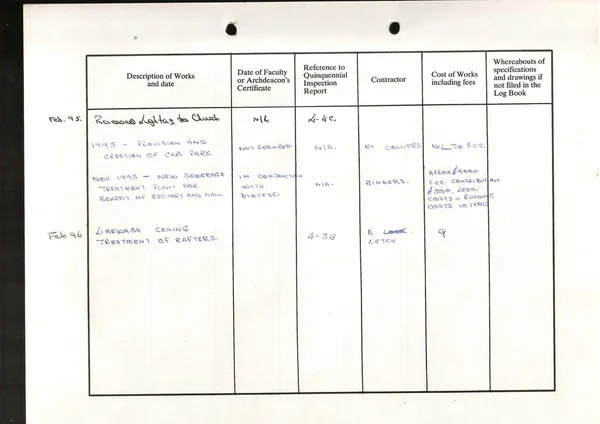 Description of Works
and date
Date of Faculty
or Archdeacon's
Certificate
Reference to
Quinquennial
Inspection
Report
Contractor
Cost of Works
including fees
Whereabouts of
specifications
and drawings if
not filed in the
Log Book
Feb. 95. Renewed Lighting to Church N/R 4-4c.
1995 - PROVISION AND
CREATION OF CAR PARK
NOT REQUIRED
N/A.
BY COLLIERS
NIL TO P.C.C.
NOV 1995 - NEW SEWERAGE
TREATMENT PLANT FOR
BENEFIT OF RECTORY AND HALL
IN CONJUNCTION
WITH
DIOCESE.
N/A.
BINDERS.
APROX £9000
P.C.C. CONTRIBUTION
£500, LEGAL
COSTS + RUNNING
COSTS 10 YEARS
Feb 96
LIMEWASH CEILING
TREATMENT OF RAFTERS.
4-3G
A.
LETCH
?